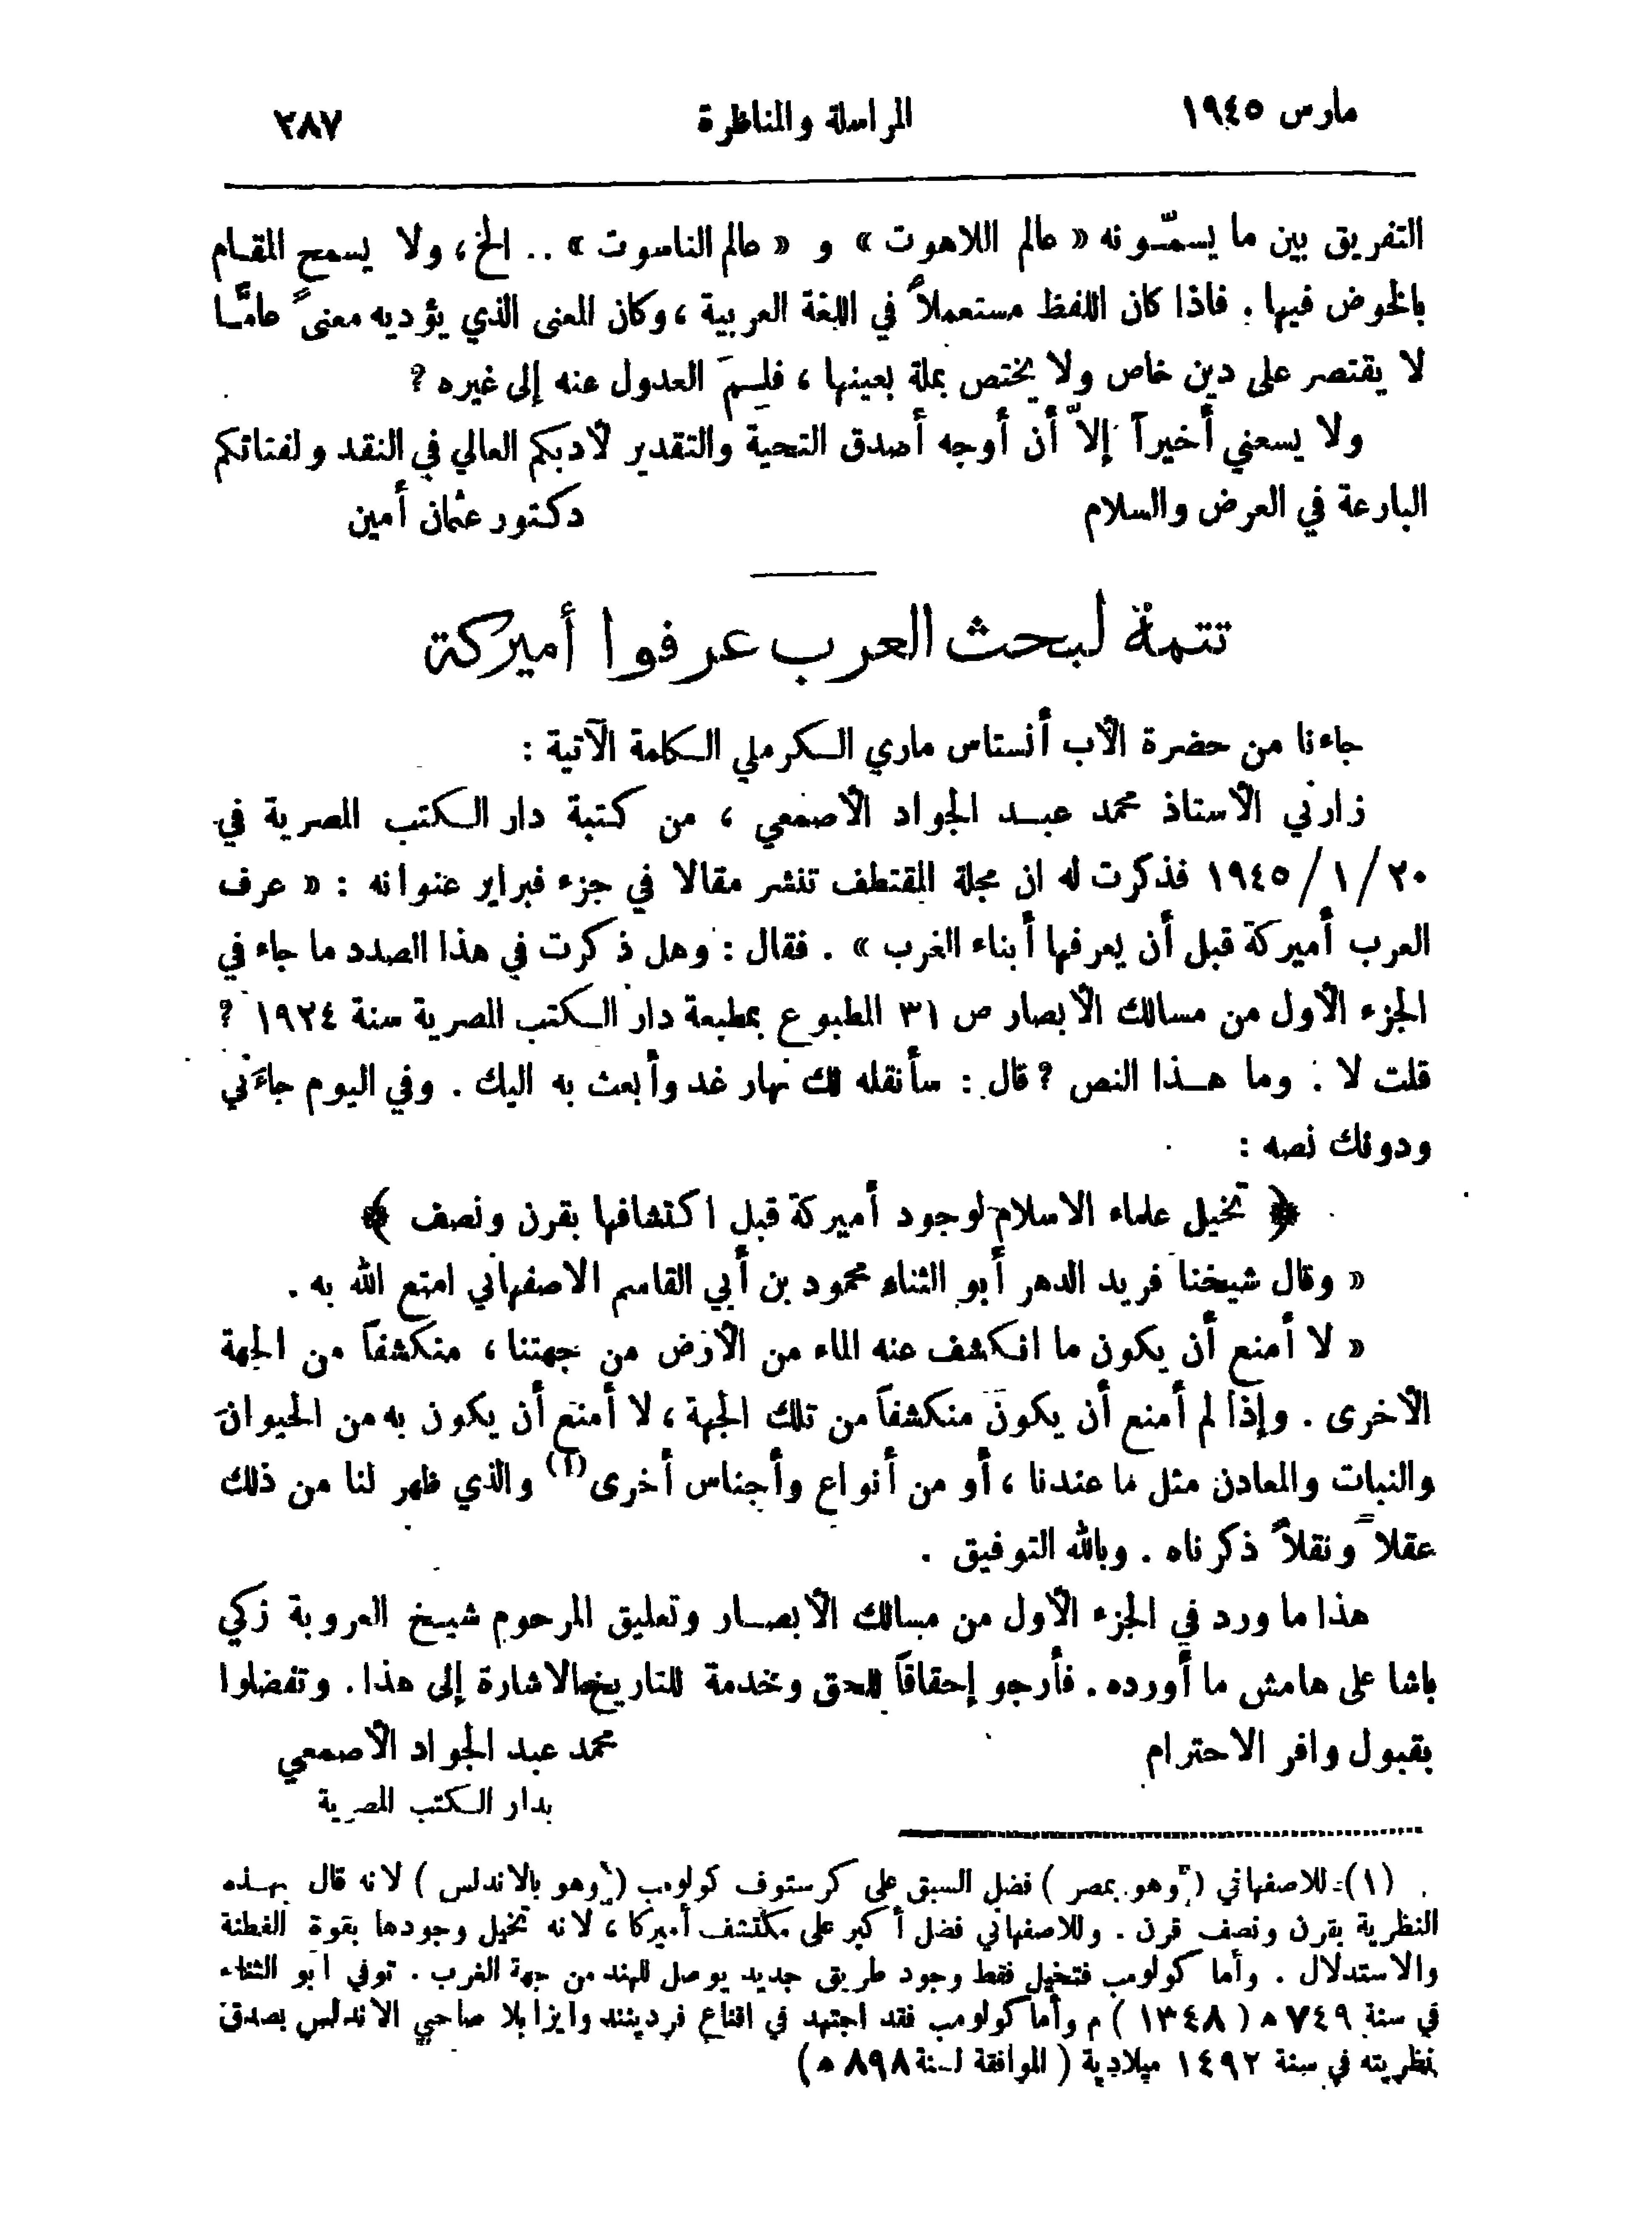 مارس ١٩٤٥ المراسلة والمناظرة ٢٨٧
التفريق بين ما يسمّـونه « عالم اللاهوت » و « عالم الناسوت » .. الخ ، ولا يسمح المقـام
بالخوض فيها . فاذا كان اللفظ مستعملاً في اللغة العربية ، وكان المعنى الذي يؤديه معنىً عامًّـا
لا يقتصر على دين خاص ولا يختص بملة بعينها ، فلِـمَ العدول عنه إلى غيره ?
ولا يسعني أخيراً إلاّ أن أوجه أصدق التحية والتقدير لأدبكم العالي في النقد ولفتاتكم
البارعة في العرض والسلام دكتور عثمان أمين
تتمة لبحث العرب عرفوا أميركة
جاءنا من حضرة الأب أنستاس ماري الـكرملي الـكلمة الآتية :
زارني الأستاذ محمد عبـد الجواد الأصمعي ، من كتبة دار الـكتب المصرية في
٢٠ / ١ / ١٩٤٥ فذكرت له ان مجلة المقتطف تنشر مقالا في جزء فبراير عنوانه : « عرف
العرب أميركة قبل أن يعرفها أبناء الغرب » . فقال : وهل ذكرت في هذا الصدد ما جاء في
الجزء الأول من مسالك الأبصار ص ٣١ المطبوع بمطبعة دار الـكتب المصرية سنة ١٩٢٤ ?
قلت لا . وما هـذا النص ? قال : سأنقله لك نهار غد وأبعث به اليك . وفي اليوم جاءَني
ودونك نصه :
﴿ تخيل علماء الاسلام لوجود أميركة قبل اكتشافها بقرن ونصف ﴾
« وقال شيخنا فريد الدهر أبو الثناء محمود بن أبي القاسم الاصفهاني امتع الله به .
« لا أمنع أن يكون ما انـكشف عنه الماء من الأرض من جهتنا ، منكشفاً من الجهة
الأخرى . وإذا لم أمنع أن يكون منكشفاً من تلك الجهة ، لا أمنع أن يكون به من الحيوان
والنبات والمعادن مثل ما عندنا ، أو من أنواع وأجناس أخرى (١) والذي ظهر لنا من ذلك
عقلاً ونقلاً ذكرناه . وبالله التوفيق .
هذا ما ورد في الجزء الأول من مسالك الأبصـار وتعليق المرحوم شيـخ العروبة زكي
باشا على هامش ما أورده . فأرجو إحقاقاً للحق وخدمة للتاريخ الاشارة إلى هذا . وتفضلوا
بقبول وافر الاحترام محمد عبد الجواد الأصمعي
بدار الـكتب المصرية
(١) للاصفهاني ( وهو بمصر ) فضل السبق على كرستوف كولومب ( وهو بالاندلس ) لانه قال بهـذه
النظرية بقرن ونصف قرن . وللاصفهاني فضل أكبر على مكتشف أميركا ، لانه تخيل وجودها بقوة الفطنة
والاستدلال . وأما كولومب فتخيل فقط وجود طريق جديد يوصل للهند من جهة الغرب . توفي أبو الثناء
في سنة ٧٤٩ ه ( ١٣٤٨ ) م وأما كولومب فقد اجتهد في اقناع فرديننند وايزابلا صاحبي الاندلس بصدق
نظريته في سنة ١٤٩٢ ميلادية ( الموافقة لـسنة ٨٩٨ ه )